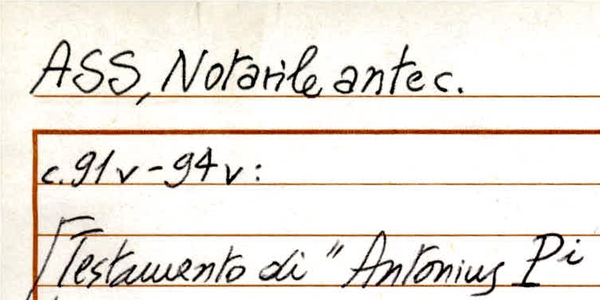 ASS, Notarile antec.
c. 91v-94v:
[Testamento di "Antonius Pi